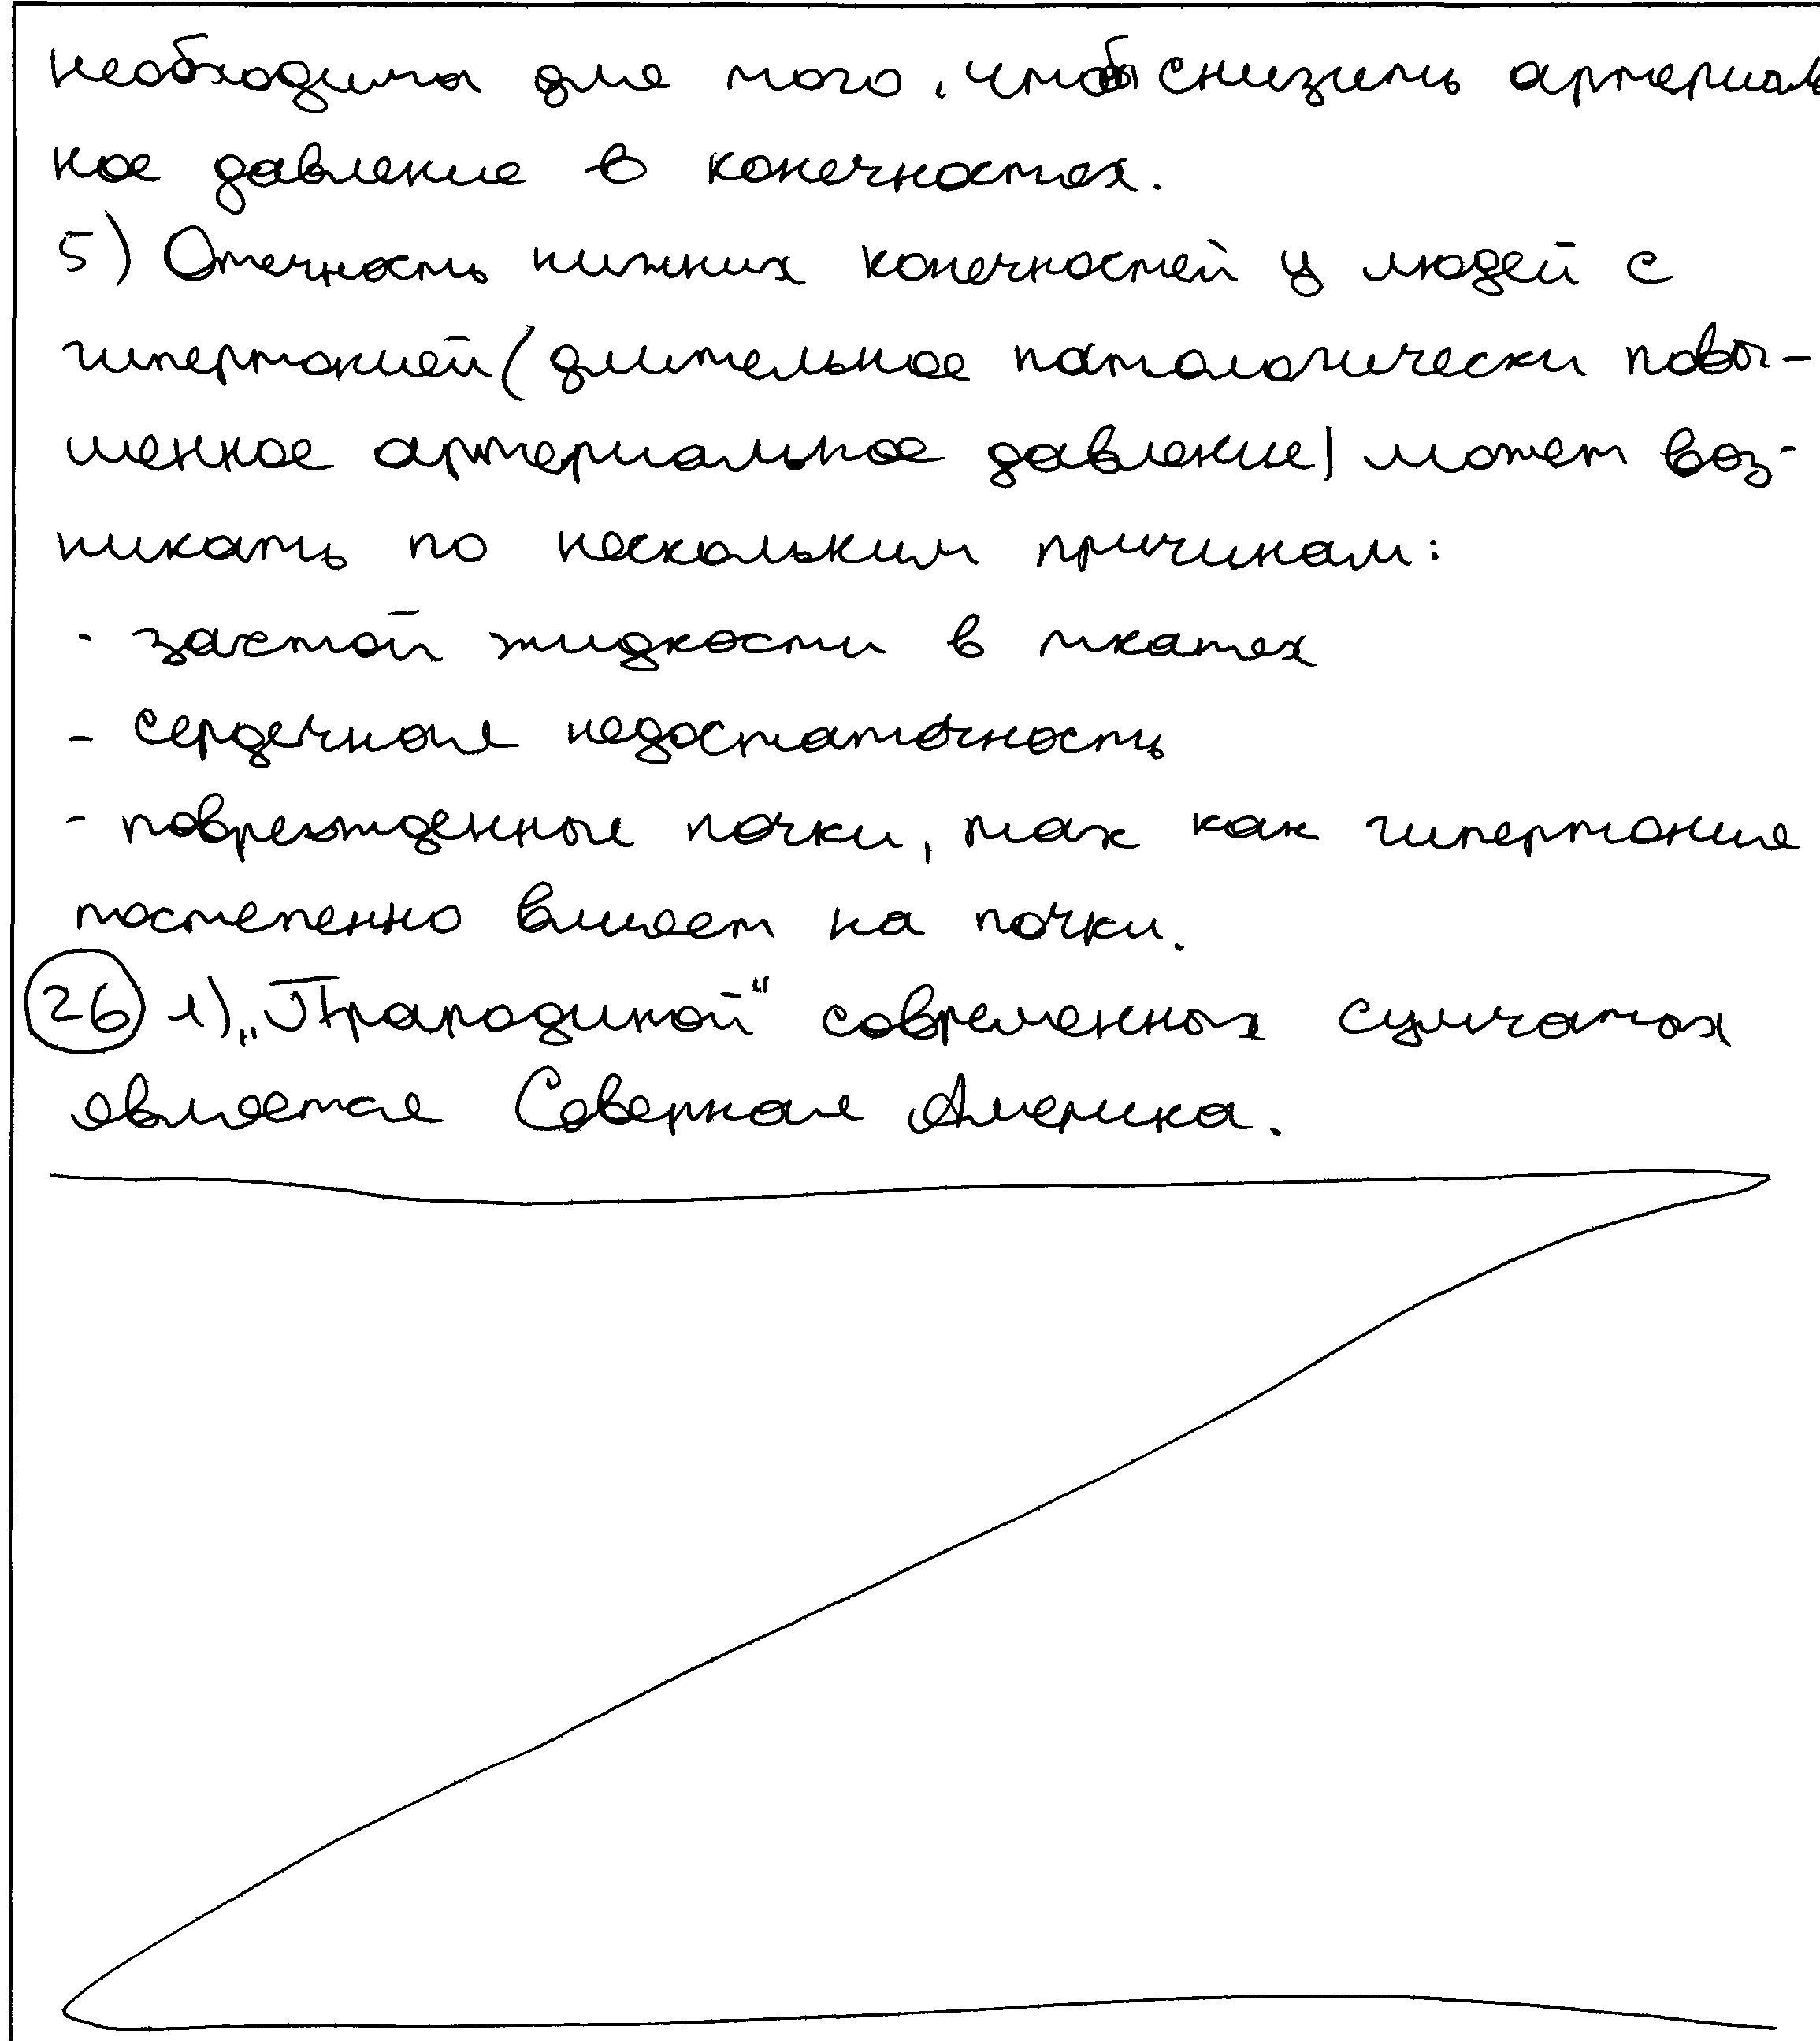 необходима для того, чтобы снизить артериаль
ное давление в конечностях.
5) Отечность нижних конечностей у людей с
гипертонией (длительное патологически повы-
шенное артериальное давление) может воз-
никать по нескольким причинам:
- застой жидкости в тканях
- сердечная недостаточность
- поврежденные почки, так как гипертония
постепенно влияет на почки.
26 1) „Прародиной“ современных сумчатых
является Северная Америка.